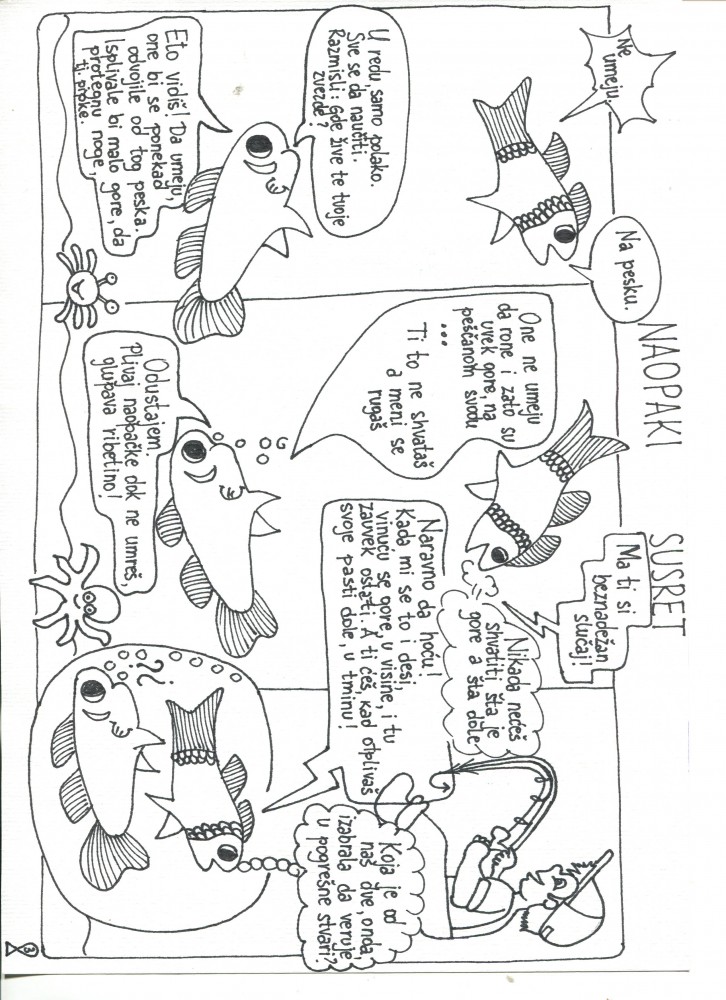 NAOPAKI SUSRET
Ne
umeju.
U redu, samo polako.
Sve se da naučiti.
Razmisli: Gde žive te tvoje
zvezde?
Na pesku.
Eto vidiš! Da umeju,
one bi se ponekad
odvojile od tog peska.
Isplivale bi malo gore, da
protegnu noge,
tj. krake.
One ne umeju
da rone i zato su
uvek gore, na
peščanom svodu
...
Ti to ne shvataš
a meni se
rugaš
Ma ti si
beznadežan
slučaj!
Nikada nećeš
shvatiti šta je
gore a šta dole
Odustajem.
Plivaj naopačke dok ne umreš,
glupava ribetino!
Naravno da hoću!
Kada mi se to i desi,
vinuću se gore, u visine, i tu
zauvek ostati. A ti ćeš, kad otplivaš
svoje pasti dole, u tminu!
Koja je od
nas dve, onda,
izabrala da veruje
u pogrešne stvari?
¿?
3